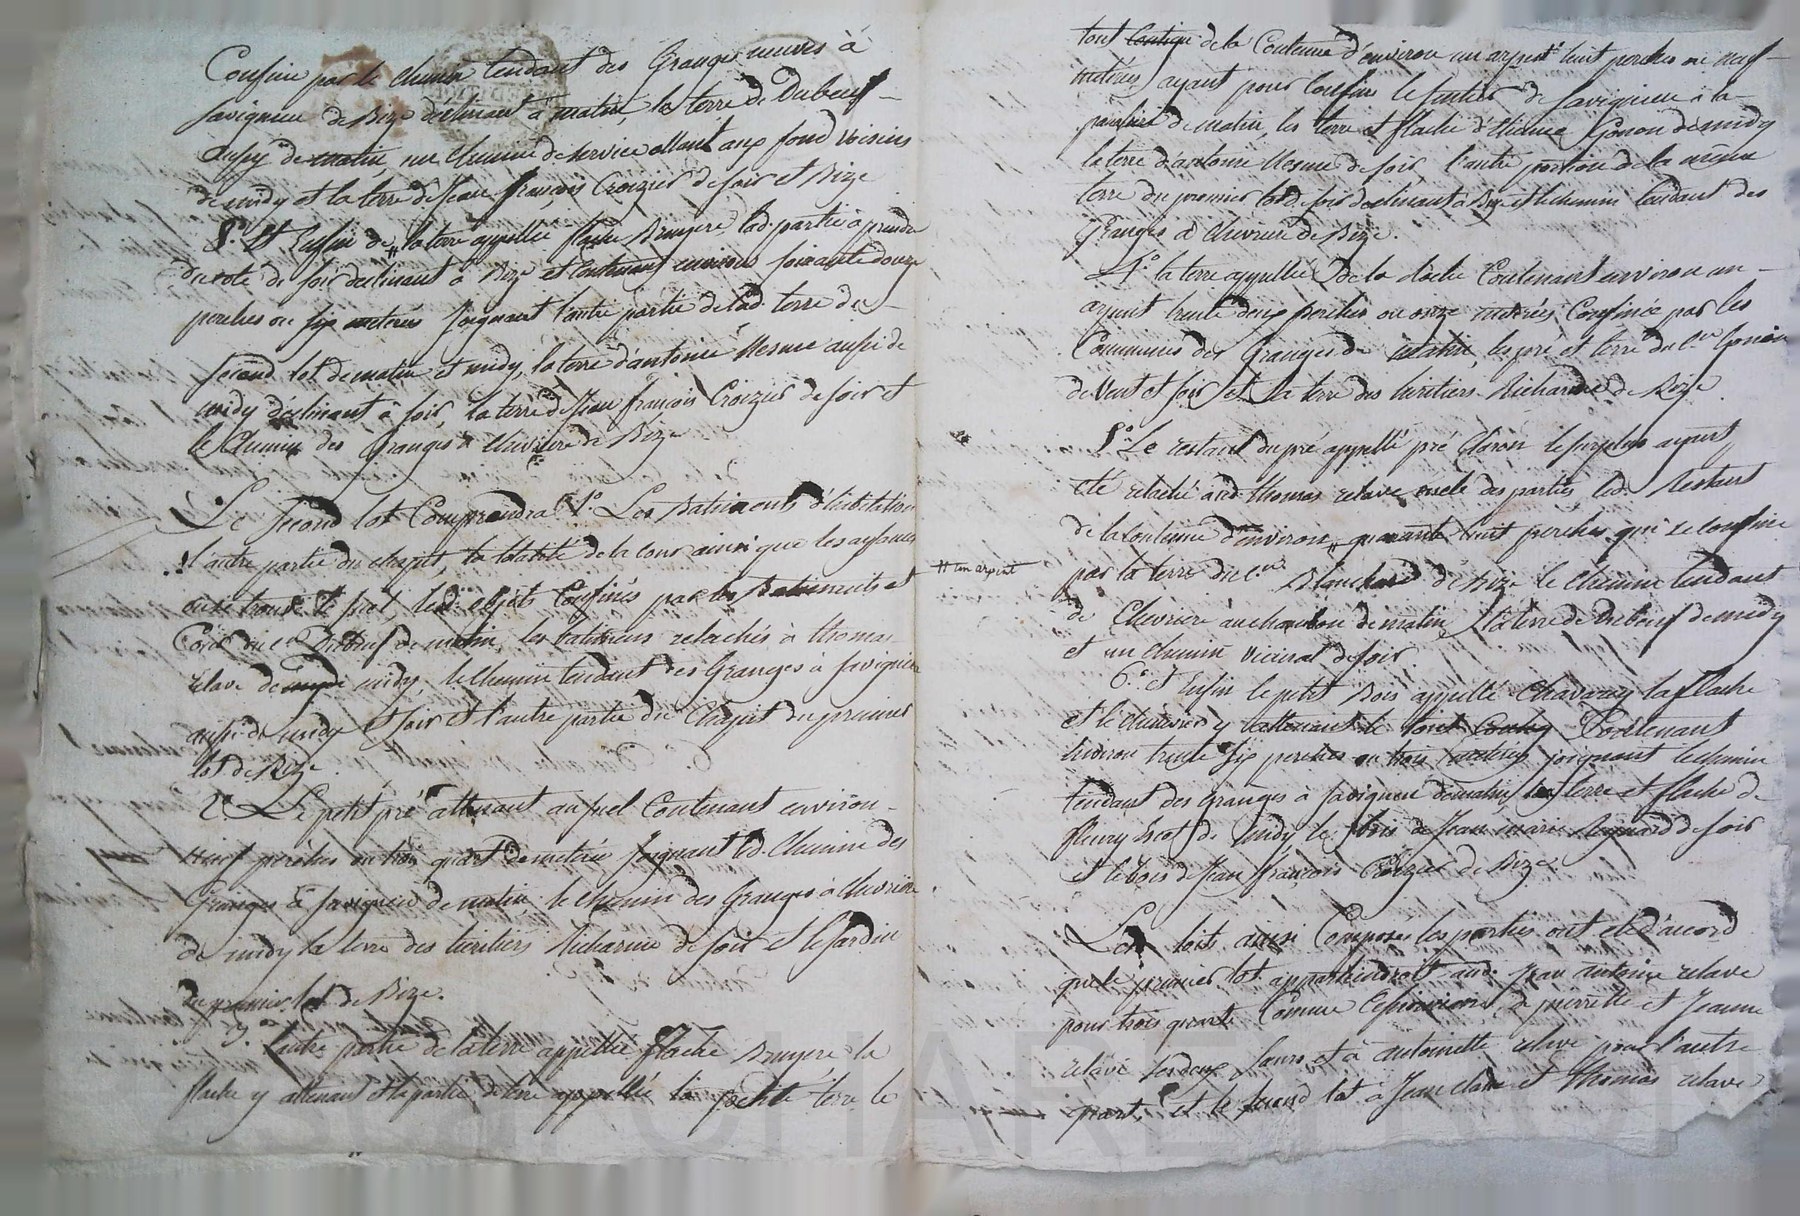 Confiné par le chemin tendant des Granges neuves à
savigneux de Bize déclinant à matin, la terre de Dubœuf
aussy de matin, un chemin de service allant aux fond voisins
de midy et la terre de Jean françois Croizier de soir et Bize
8.° Et Enfin de la terre appellée flache Bruyere lad. partie à prendre
du coté de soir declinant à Bize et contenant environ soixante douze
perches ou six metérées joignant l'autre partie de lad. terre du
second lot de matin et midy, la terre d'antoine Mesme aussi de
midy déclinant à soir, la terre de Jean françois Croizier de soir et
le Chemin des Granges à Chivriere de Bize
Le second lot Comprendra 1.° Les Batiments d'habitation
l'autre partie du chapit, la totalité de la cour ainsi que les aysances
ou se trouve le puel, lesd. objets Confinés par les Batiments et
Cour du Cen Dubœuf de matin, les batimens relachés à thomas
relave de midy, le chemin tendant des Granges à savigneux
aussi de midy et soir et l'autre partie du Chapit du premier
lot de Bize.
2.° Le petit pré attenant au puel Contenant environ
neuf perches ou trois quart de meterée joignant led. Chemin des
Granges à savigneux de matin, le chemin des Granges à Chivriere
de midy la terre des héritiers Richarme de soir et le jardin
du premier lot de Bize.
3.° L'autre partie de la terre appellée flache Bruyere, la
flache y attenant et la partie de terre appellée la petite terre le
tout contigu de la Contenue d'environ un arpent huit perches ou neuf
metérées, ayant pour Confins le sentier de savigneux à la
de matin, les terre et flache d'Etienne Gonon de midy
la terre d'antoine Mesme de soir, l'autre portion de la même
terre du premier lot de soir declinant à Bize et le chemin tendant des
Granges à Chivrieu de Bize.
4.° la terre appellée de la Contenant environ un
arpent trente deux perches ou onze metérées Confinée par les
Communes des Granges de matin, les pré et terre du Cen Gonon
de Vent et soir, et la terre des héritiers Richarme de Bize
5.° Le restant du pré appellé pré Cloron le surplus ayant
été relaché aud. thomas relave oncle des parties led. Restant
de la Contenue d'environ quarante huit perches qui se confine
# un arpent
par la terre du Cen Blanchard de Bize le chemin tendant
de Chevriere à de matin, la terre de Dubœuf de midy
et un chemin vicinal de soir.
6.° et Enfin le petit Bois appellé Chavanay la flache
et le y attenant le tout Contenant
Environ trente six perches ou trois metérées joignant le chemin
tendant des Granges à savigneux de matin, les terre et flache de
fleury de midy le Bois de Jean marie Reynard de soir
et le bois de Jean françois Croizier de Bize.
Les lots ainsi Composés les parties ont été d'accord
que le premier lot appartiendroit aud. Jean antoine relave
pour trois quarts Comme de pierrette et Jeanne
relave ses deux sœurs, et à antoinette relave pour l'autre
quart, et le second lot à Jean claude et thomas relave